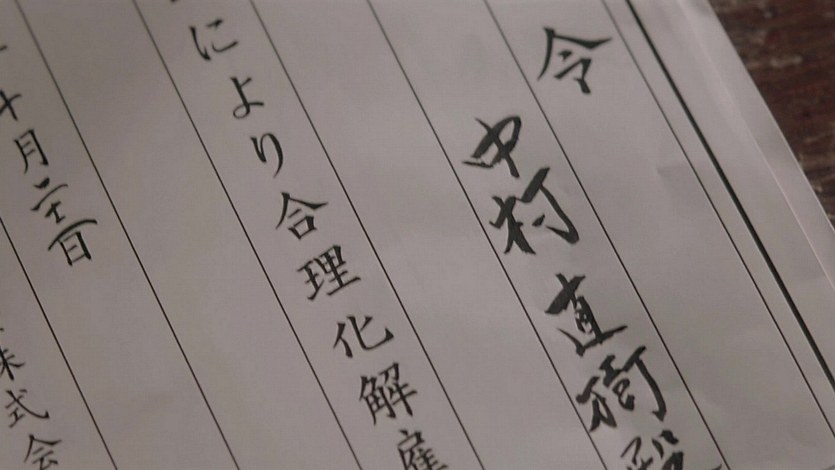 令
中村直 殿
により合理化解雇
十月二十一日
株式会